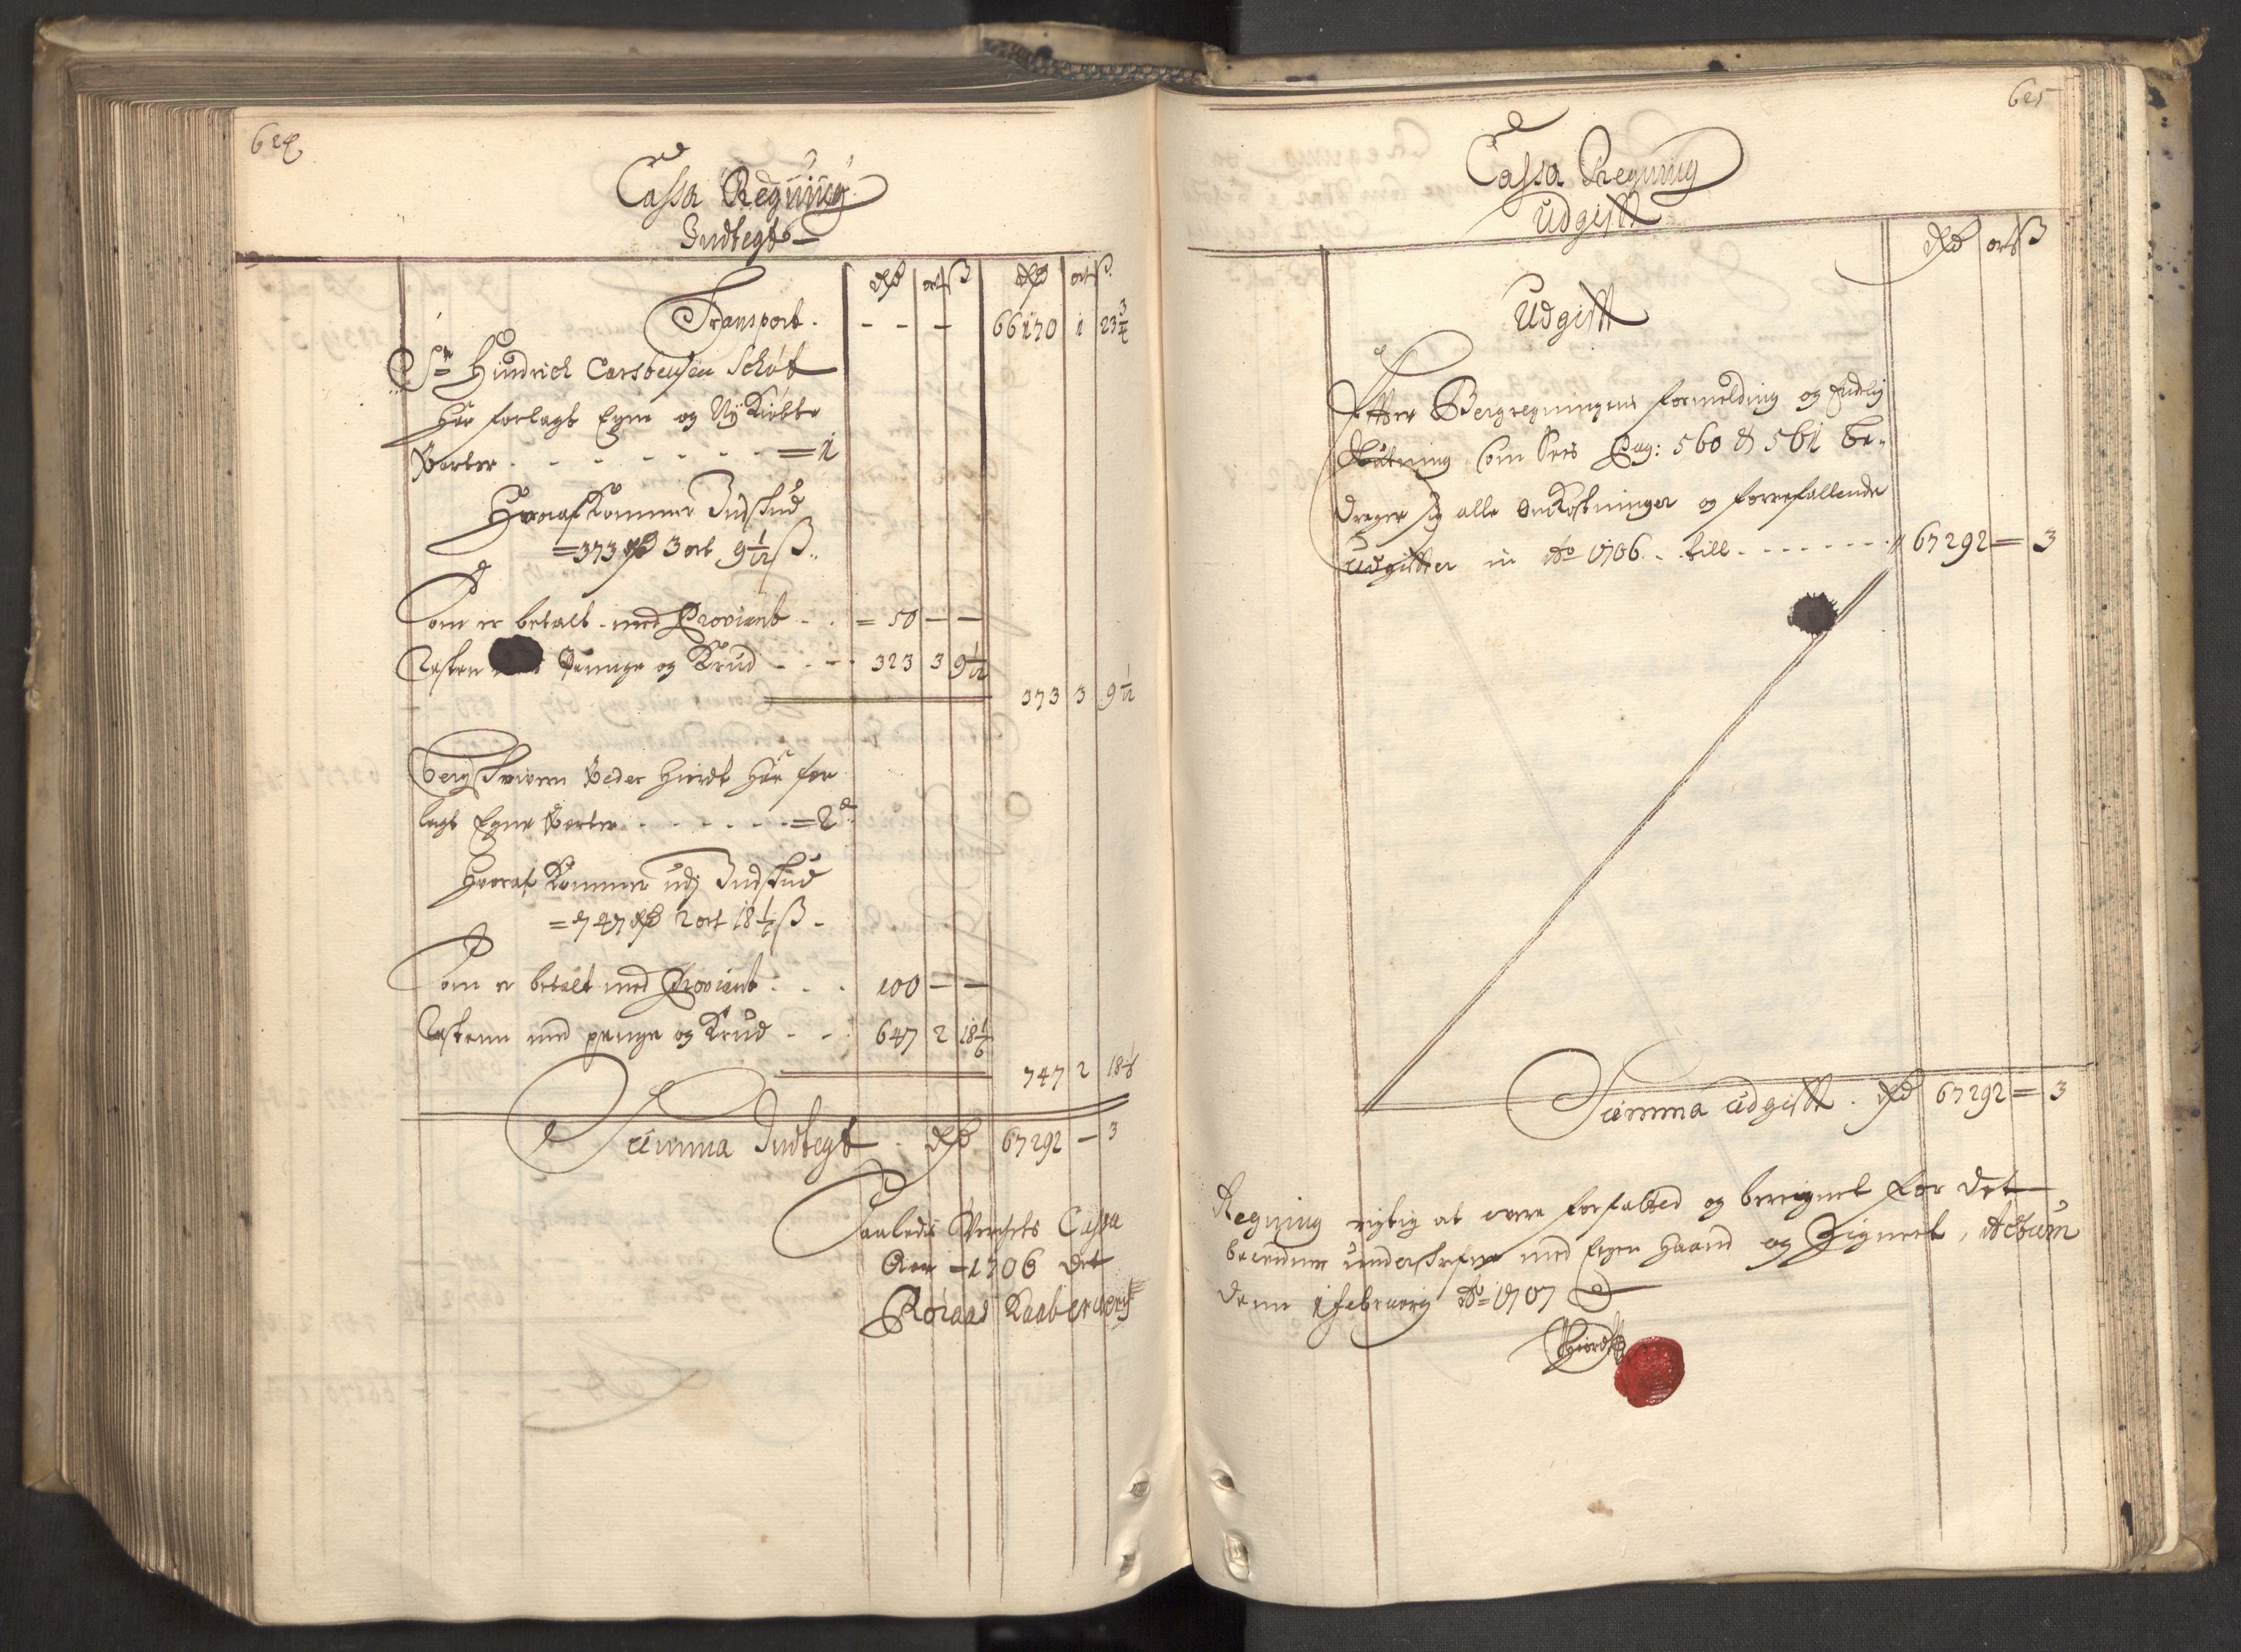 624
Cassa Regning
Indtegt
Rdr ort ß Rdr ort ß
Transport. - - - 66170 1 23¾
Sr Hindrich Carstensen Schøt
Har forlagt Egne og Ny Kiøbte
Parter - - - - - - = 1
Hvoraf Kommer Indskud
= 373 Rdr 3 ort 9 1/12 ß
Som er betalt med Proviant - - = 50 — —
Resten Penninge og Krud - - - 323 3 9 1/12
373 3 9 1/12
Bergskrivern Peder Hiordt Har for
lagt Egne Parter - - - - - - = 2
Hvoraf Kommer udj Indskud
= 747 Rdr 2 ort 18 1/6 ß
Som er betalt med Proviant - - 100 — —
Restenn med penge og Krud - - 647 2 18 1/6
747 2 18 1/6
Summa Indtegt. Rdr 67292 — 3
Saaledis Verchets Cassa
Aar = 1706 det
Røraas Kaaberverch
625
Cassa Regning
Udgifft
Rdr ort ß
Udgifft
Effter Bergregningens formelding og Endelig
Slutning som sees Pag: 560 & 561 be-
drager sig alle Omkostninger og forrefallende
Udgiffter in Ao 1706 - till - - - - - - 67292 = 3
Summa Udgifft. Rdr 67292 = 3
Regning rigtig at vere forfatted og beregnet for det
bekiender underskrefven med Egen Haand og Zignet, Actum
denn 1 February Ao = 1707
PHiordt